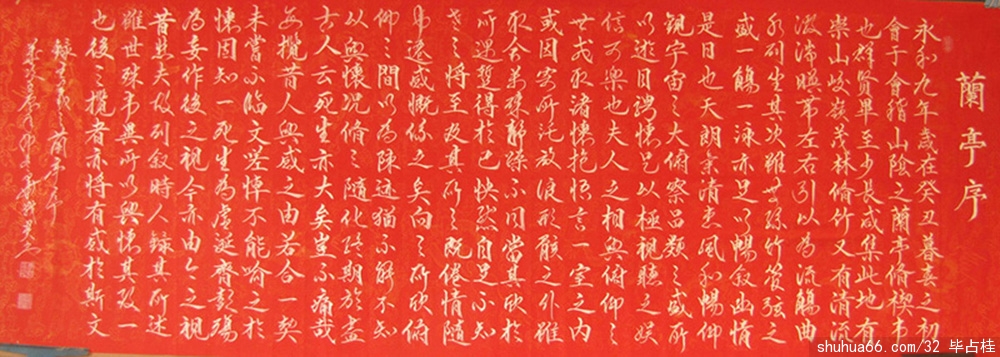 蘭亭序
永和九年歲在癸丑暮春之初
會于會稽山陰之蘭亭脩禊事
也群賢畢至少長咸集此地有
崇山峻嶺茂林脩竹又有清流
激湍暎帶左右引以為流觴曲
水列坐其次雖無絲竹管弦之
盛一觴一詠亦足以暢敘幽情
是日也天朗氣清惠風和暢仰
觀宇宙之大俯察品類之盛所
以遊目騁懷足以極視聽之娛
信可樂也夫人之相與俯仰一
世或取諸懷抱悟言一室之內
或因寄所託放浪形骸之外雖
取舍萬殊靜躁不同當其欣於
所遇暫得於己快然自足不知
老之將至及其所之既倦情隨
事遷感慨係之矣向之所欣俯
仰之間以為陳迹猶不能不
以興懷況脩隨化終期於盡
古人云死生亦大矣豈不痛哉
每攬昔人興感之由若合一契
未嘗不臨文嗟悼不能喻之於
懷固知一死生為虛誕齊彭殤
為妄作後之視今亦由今之視
昔悲夫故列敘時人錄其所述
雖世殊事異所以興懷其致一
也後之攬者亦將有感於斯文
錄王羲之蘭亭序
shuhua66.com/32 毕占桂